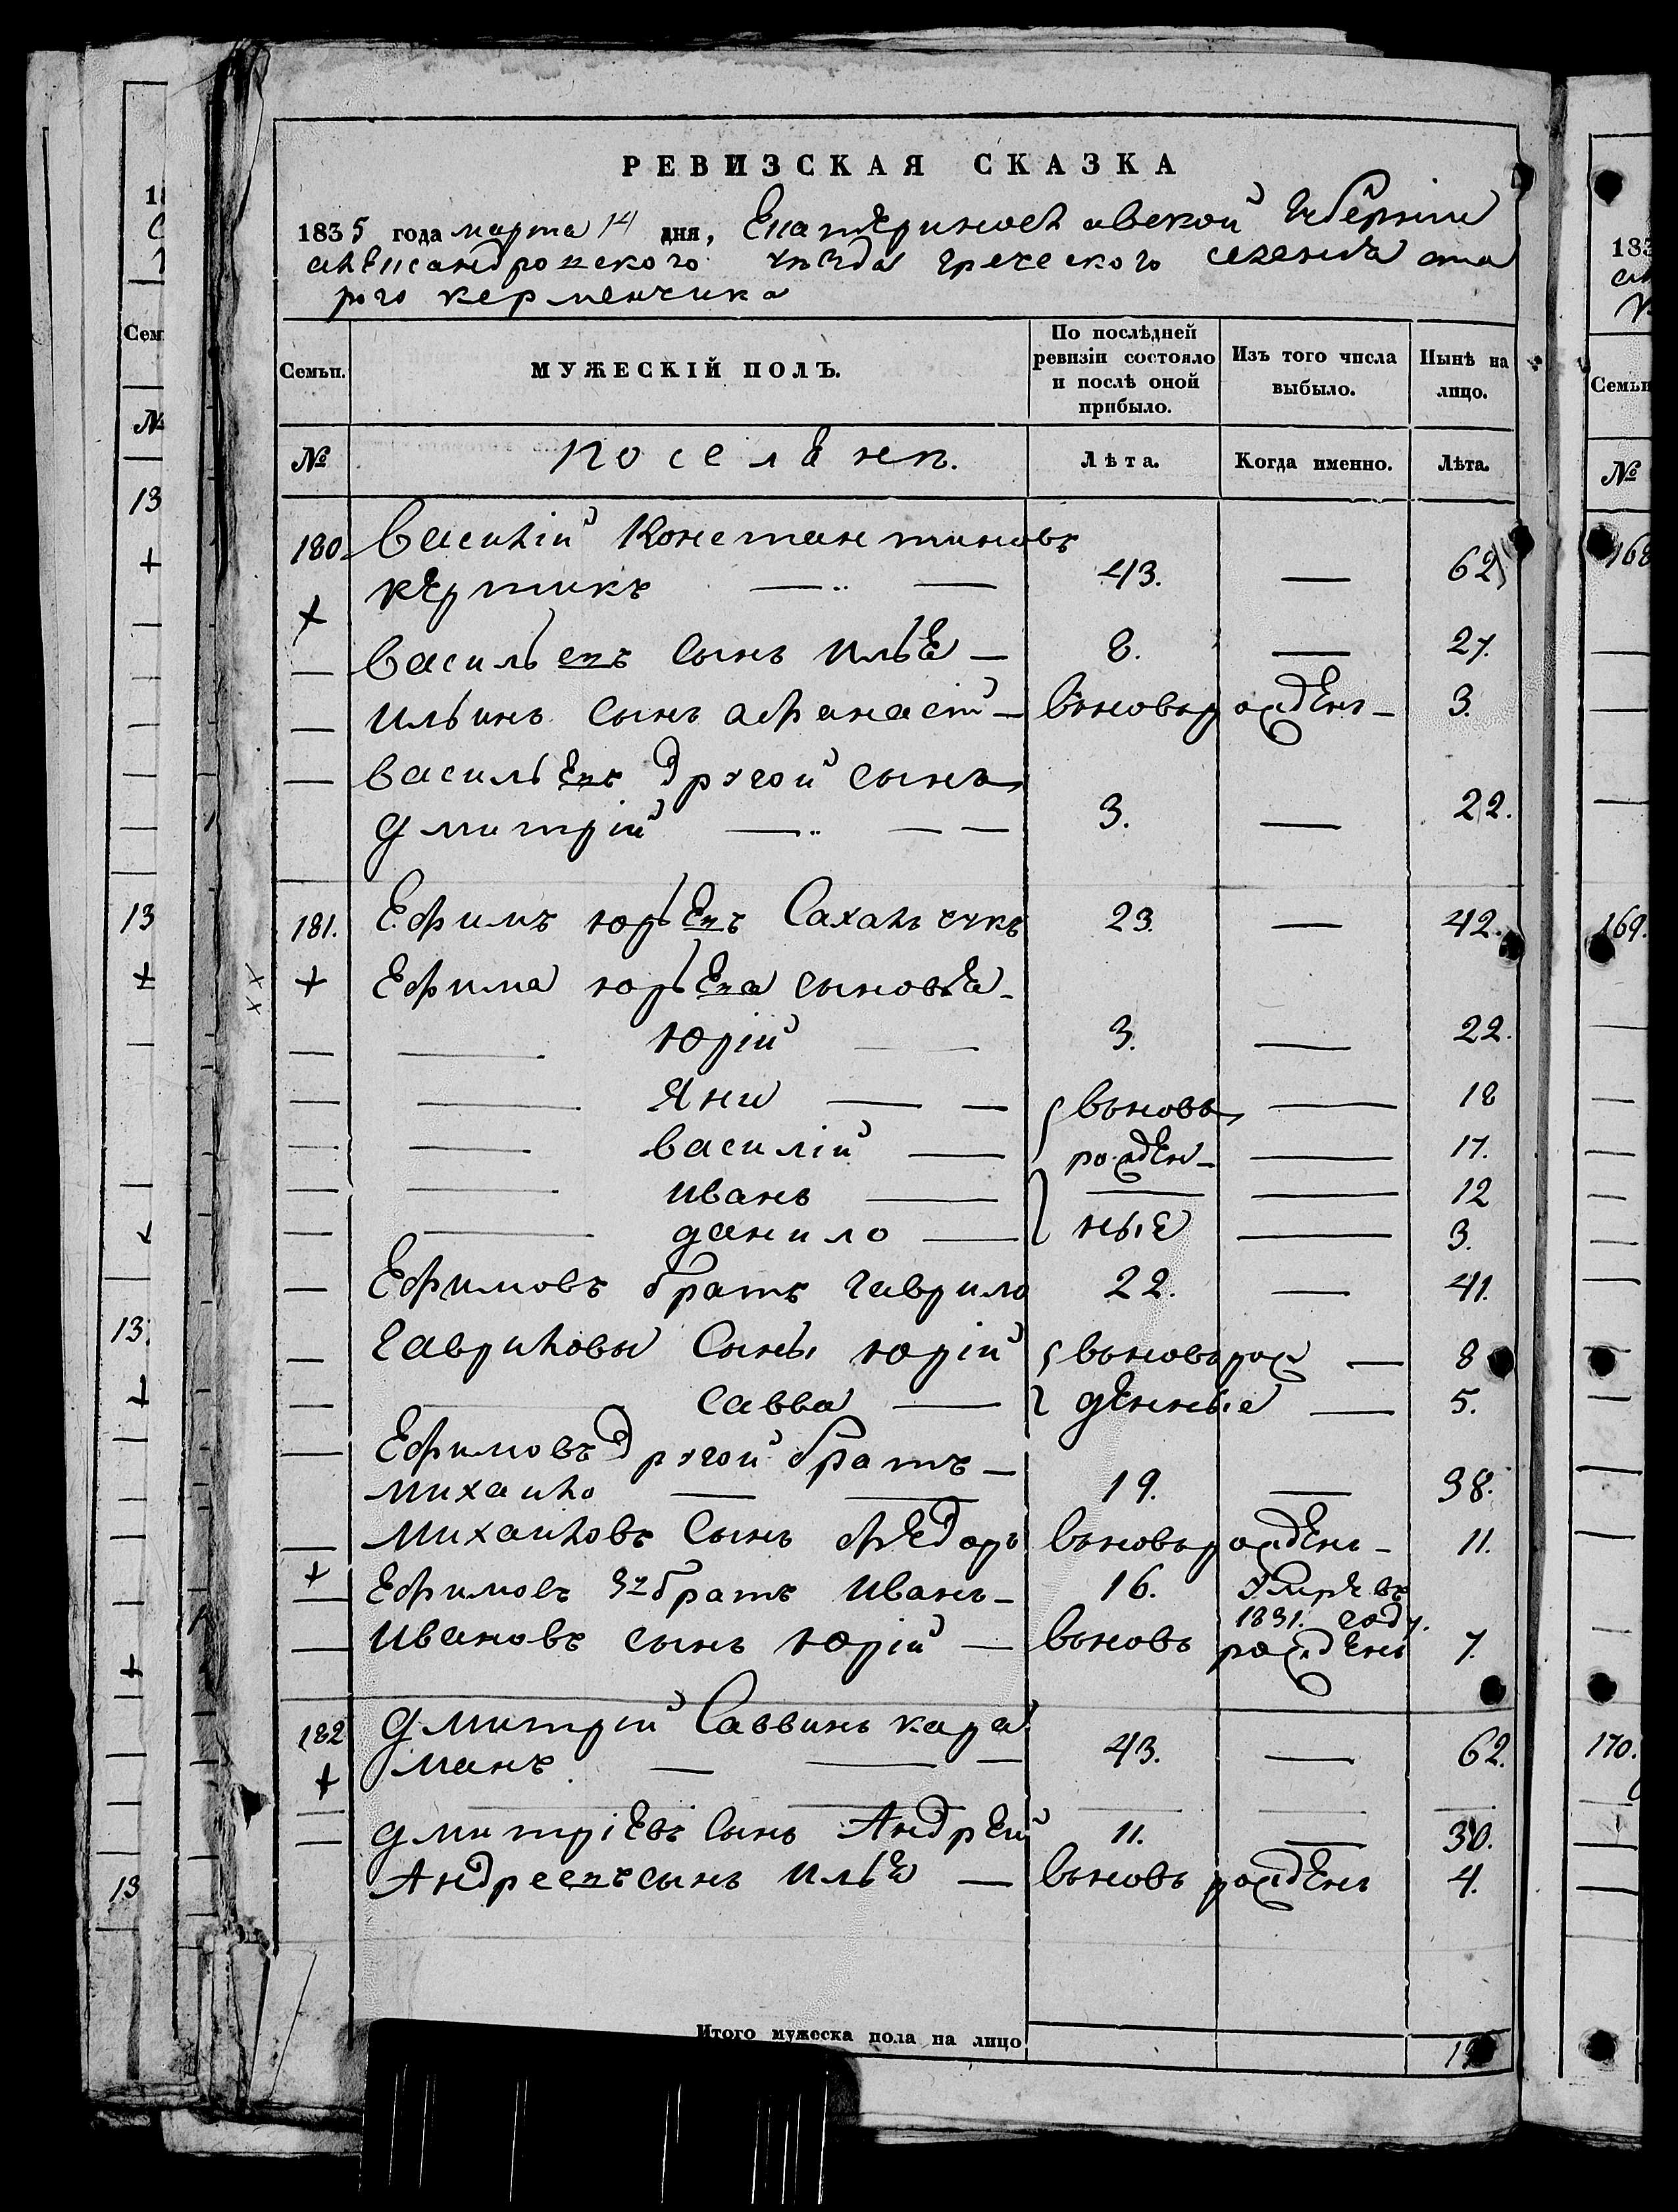 РЕВИЗСКАЯ СКАЗКА
1835 года марта 14 дня, Екатеринославской Губернии
александровского уезда греческого селения ста
рого керменчика
Семьи. МУЖЕСКІЙ ПОЛЪ. По послѣдней ревизіи состояло и послѣ оной прибыло. Изъ того числа выбыло. Нынѣ на лицо.
№ Поселяне. Лѣта. Когда именно. Лѣта.
180. Василій Константиновъ
43. — 62
— Васильевъ сынъ Илья — 8. — 27.
— Ильинъ сынъ афанасій — вновьрожденъ — 3.
— Васильевъ другой сынъ
Дмитрій — 3. — 22.
181. Ефимъ юрьевъ 23. — 42.
+ Ефима юрьева сыновья
— юрій — 3. — 22.
— Яни — вьновь — 18
— Василій — рожден — 17.
— иванъ — — — 12
— данило — ные — 3.
— Ефимовъ братъ гаврило 22. — 41.
— Гавриловы Сыны юрій вьноврож — 8
— Савва — денные — 5.
— Ефимовъ другой братъ —
михайло — 19. — 38.
— Михайловъ Сынъ федоръ вьновьрожденъ — 11.
+ — Ефимовъ 3й братъ Иванъ — 16. умре въ
1831. году.
— Ивановъ сынъ юрій — вьновь рожденъ 7.
182 Дмитрій Саввинъ кара
+ манъ — 43. — 62.
— дмитріевъ Сынъ Андрей 11. — 30.
Андреевъ сынъ илья — вьновь рожденъ 4.
Итого мужеска пола на лицо
183
Семьи
№
168
169.
170.
Сем
№
13
13
13
13